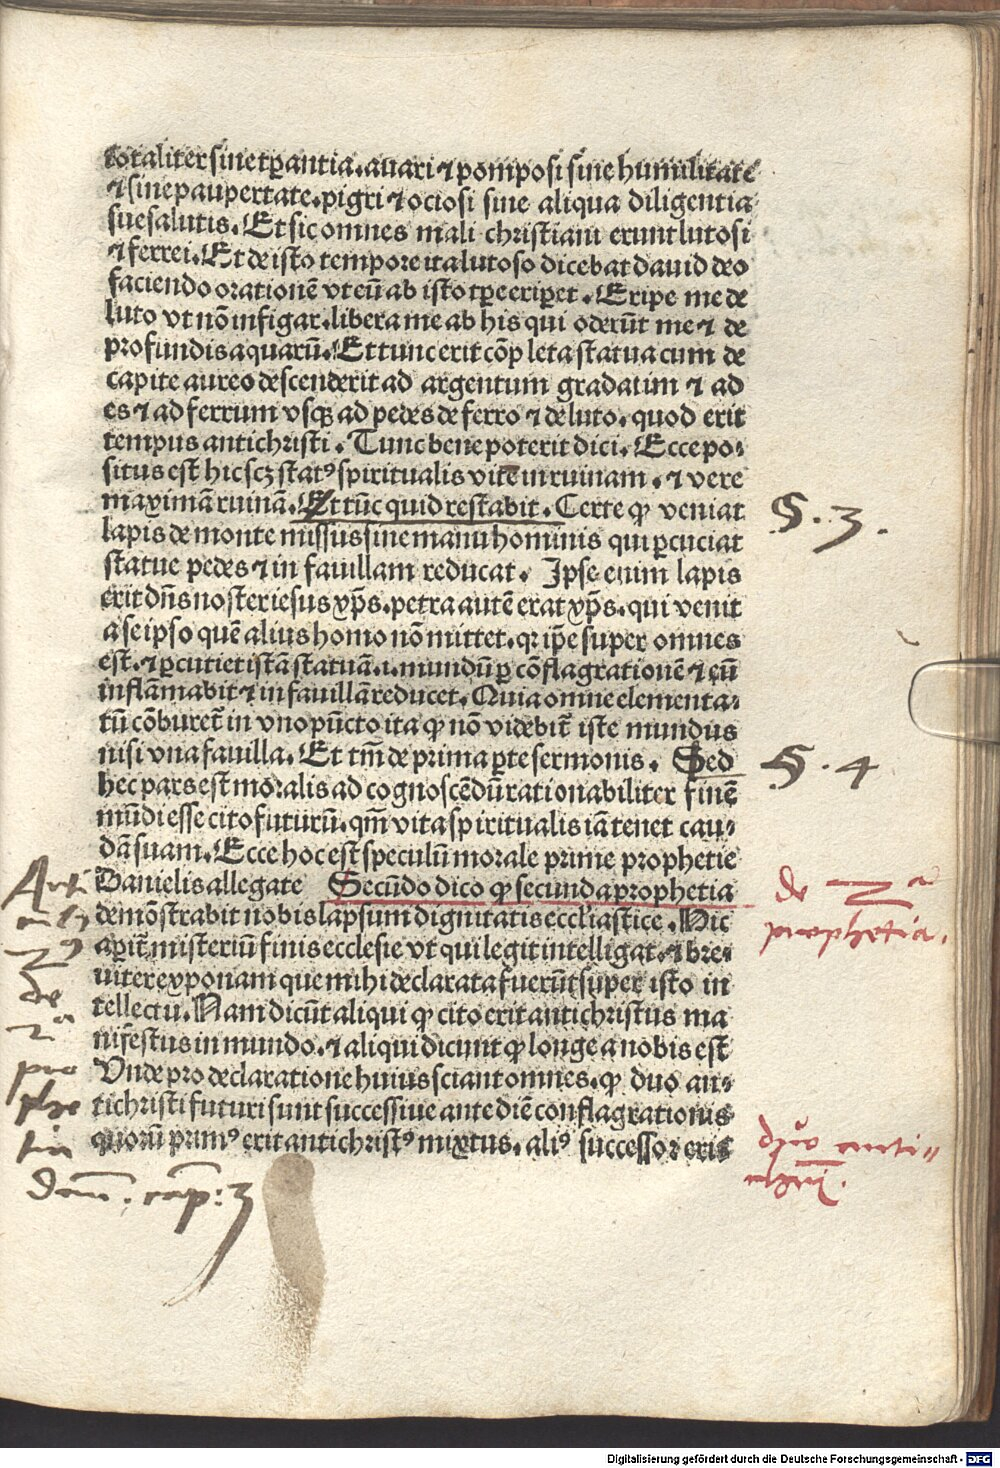 totaliter sine tꝑantia. auari ⁊ pomposi sine humilitate
⁊ sine paupertate. pigri ⁊ ociosi sine aliqua diligentia
sue salutis. Et sic omnes mali christiani erunt lutosi
⁊ ferrei. Et de isto tempore ita lutoso dicebat dauid deo
faciendo orationē vt eū ab isto tꝑe eriꝑet. Eripe me de
luto vt nō infigar. libera me ab his qui oderūt me ⁊ de
profundis aquarū. Et tunc erit cōpleta statua cum de
capite aureo descenderit ad argentum gradatim ⁊ ad
es ⁊ ad ferrum vsqꝫ ad pedes de ferro ⁊ de luto. quod erit
tempus antichristi. Tunc bene poterit dici. Ecce po⸗
situs est hic scꝫ statꝰ spiritualis vite in ruinam. ⁊ vere
maximā ruinā. Et tūc quid restabit. Certe ꝙ veniat
lapis de monte missus sine manu hominis qui ꝑcuciat
statue pedes ⁊ in fauillam reducat. Ipse enim lapis
erit dn̄s noster iesus xp̄s. petra autē erat xp̄s. qui venit
a se ipso quē alius homo nō mittet. qꝛ ip̄e super omnes
est. ⁊ ꝑcutiet istā statuā .i. mundū ꝑ cōflagrationē ⁊ eū
inflāmabit ⁊ in fauillā reducet. Quia omne elementa⸗
tū cōburet̄ in vno pūcto ita ꝙ nō videbit̄ iste mundus
nisi vna fauilla. Et tm̄ de prima ꝑte sermonis. Sed
hec pars est moralis ad cognoscēdū rationabiliter finē
mūdi esse cito futurū. qm̄ vita spiritualis iā tenet cau⸗
dā suam. Ecce hoc est speculū morale prime prophetie
Danielis allegate Secūdo dico ꝙ secunda prophetia
demōstrabit nobis lapsum dignitatis ecclīastice. Hic
aꝑit̄ misteriū finis ecclesie vt qui legit intelligat. ⁊ bre⸗
uiter exponam que mihi declarata fuerūt super isto in
tellectu. Nam dicūt aliqui ꝙ cito erit antichristus ma
nifestus in mundo. ⁊ aliqui dicunt ꝙ longe a nobis est
Unde pro declaratione huius sciant omnes. ꝙ duo an⸗
tichristi futuri sunt successiue ante diē conflagrationis
quorū primꝰ erit antichristꝰ mixtus. aliꝰ successor eris
§. 3.
§. 4
de 2ª
prophetia.
duo anti⸗
2ꝰ
de
2ª
pro
phe
tia
Digitalisierung gefördert durch die Deutsche Forschungsgemeinschaft - DFG